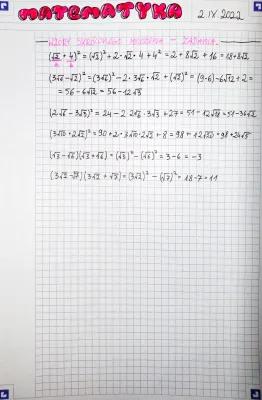 MATEMATYKA 2 IX 2022
WZORY SKRÓCONEGO MNOŻENIA - ZADANIA
(√2 + 4)² = (√2)² + 2·√2·4 + 4² = 2 + 8√2 + 16 = 18+8√2
(3√6 - √2)² = (3√6)² - 2·3√6·√2 + (√2)² = (9·6) - 6√12 + 2 =
= 56 - 6√12 = 56 - 12√3
(2√6 - 3√3)² = 24 - 2·2√6·3√3 + 27 = 51 - 12√18 = 51 - 36√2
(3√10 + 2√2)² = 90 + 2·3√10·2√2 + 8 = 98 + 12√20 = 98 + 24√5
(√3 - √6)(√3 + √6) = (√3)² - (√6)² = 3 - 6 = -3
(3√2 - √7)(3√2 + √7) = (3√2)² - (√7)² = 18 - 7 = 11